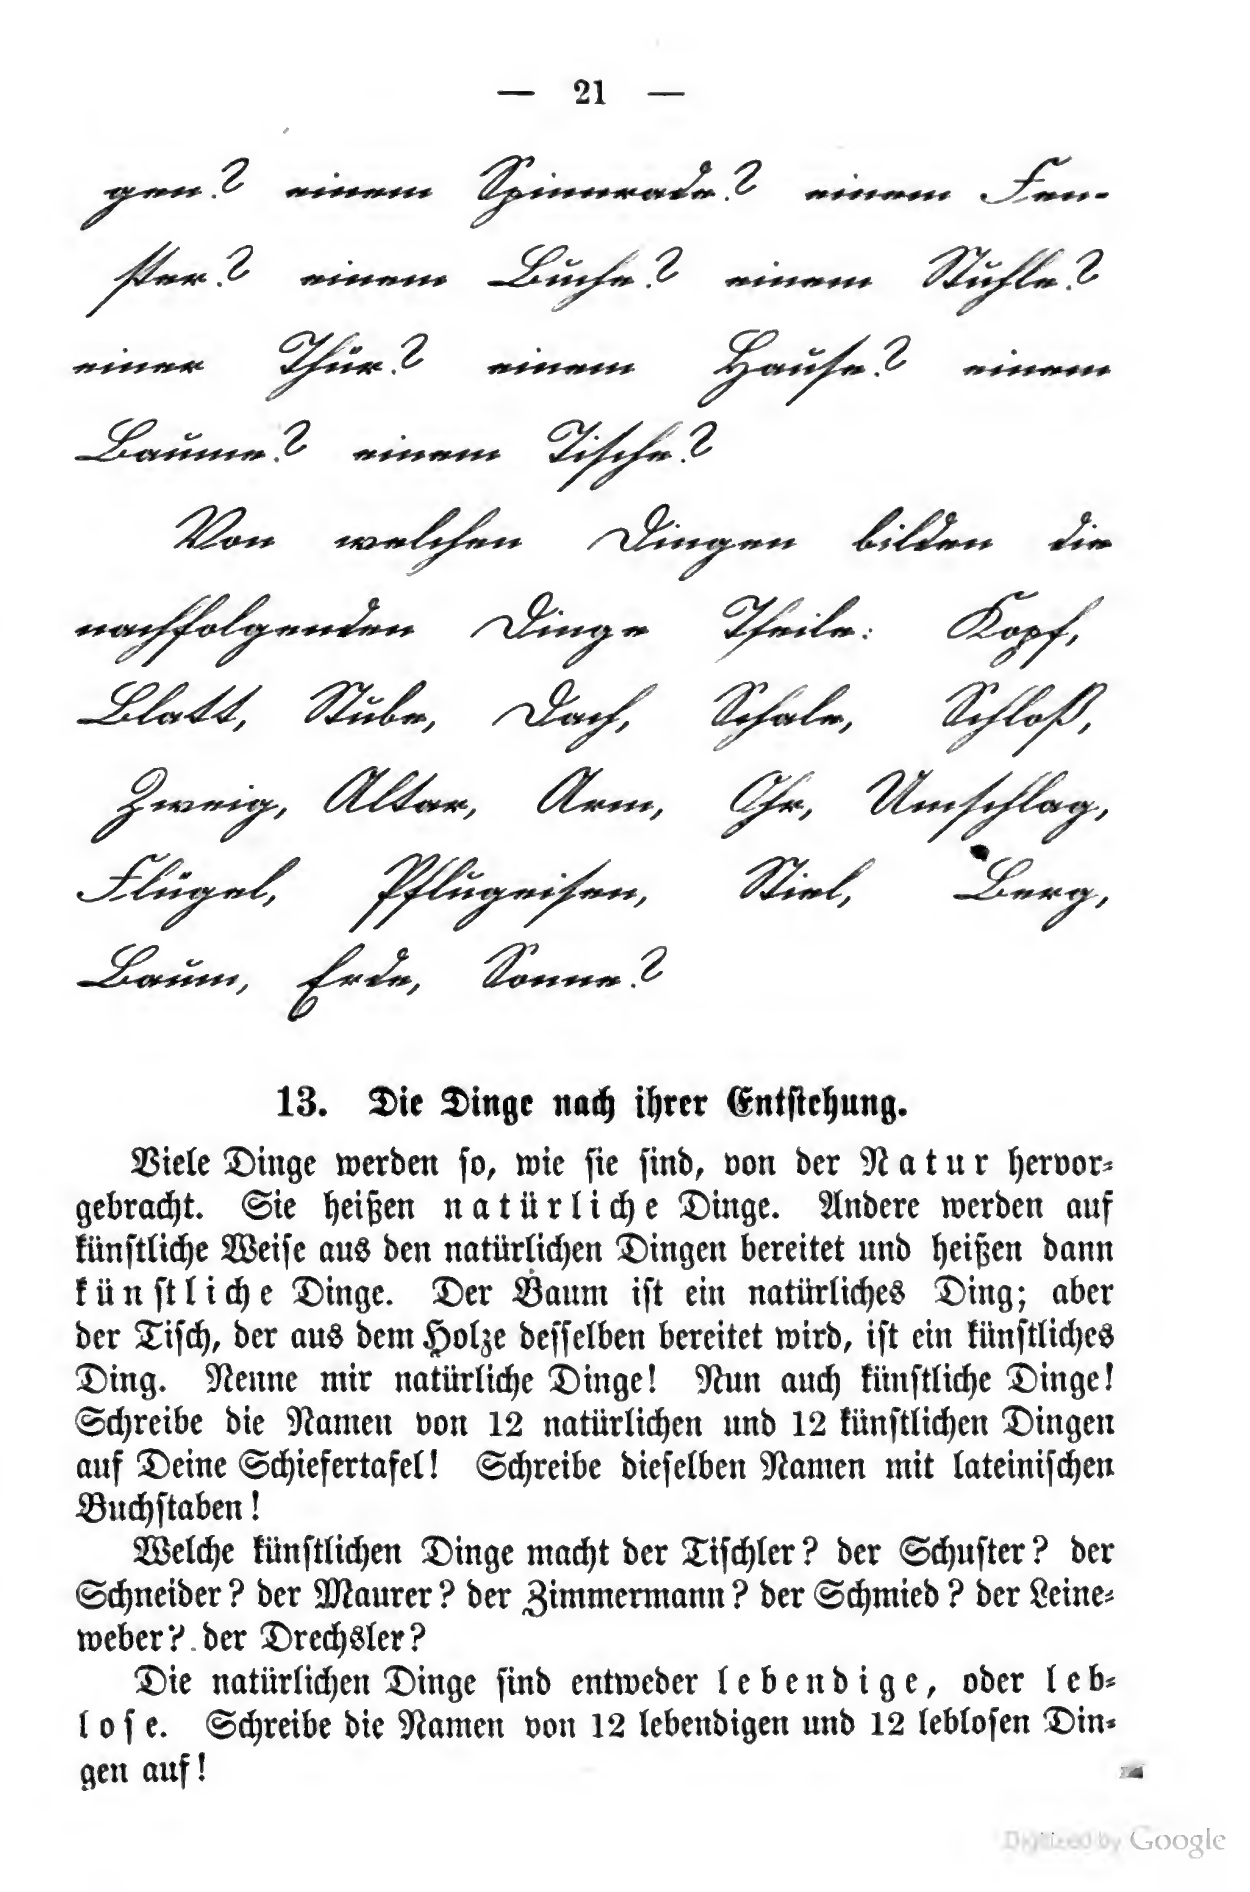 — 21 —
gen? einem Spinnrade? einem Fen-
ster? einem Buche? einem Stuhle?
einer Thür? einem Hause? einem
Baume? einem Tische?
Von welchen Dingen bilden die
nachfolgenden Dinge Theile: Kopf,
Blatt, Stube, Dach, Schale, Schloß,
Zweig, Altar, Arm, Ohr, Umschlag,
Flügel, Pflugeisen, Stiel, Berg,
Baum, Erde, Sonne?
13. Die Dinge nach ihrer Entstehung.
Viele Dinge werden so, wie sie sind, von der Natur hervor-
gebracht. Sie heißen natürliche Dinge. Andere werden auf
künstliche Weise aus den natürlichen Dingen bereitet und heißen dann
künstliche Dinge. Der Baum ist ein natürliches Ding; aber
der Tisch, der aus dem Holze desselben bereitet wird, ist ein künstliches
Ding. Nenne mir natürliche Dinge! Nun auch künstliche Dinge!
Schreibe die Namen von 12 natürlichen und 12 künstlichen Dingen
auf Deine Schiefertafel! Schreibe dieselben Namen mit lateinischen
Buchstaben!
Welche künstlichen Dinge macht der Tischler? der Schuster? der
Schneider? der Maurer? der Zimmermann? der Schmied? der Leine-
weber? der Drechsler?
Die natürlichen Dinge sind entweder lebendige, oder leb-
lose. Schreibe die Namen von 12 lebendigen und 12 leblosen Din-
gen auf!
Digitized by Google